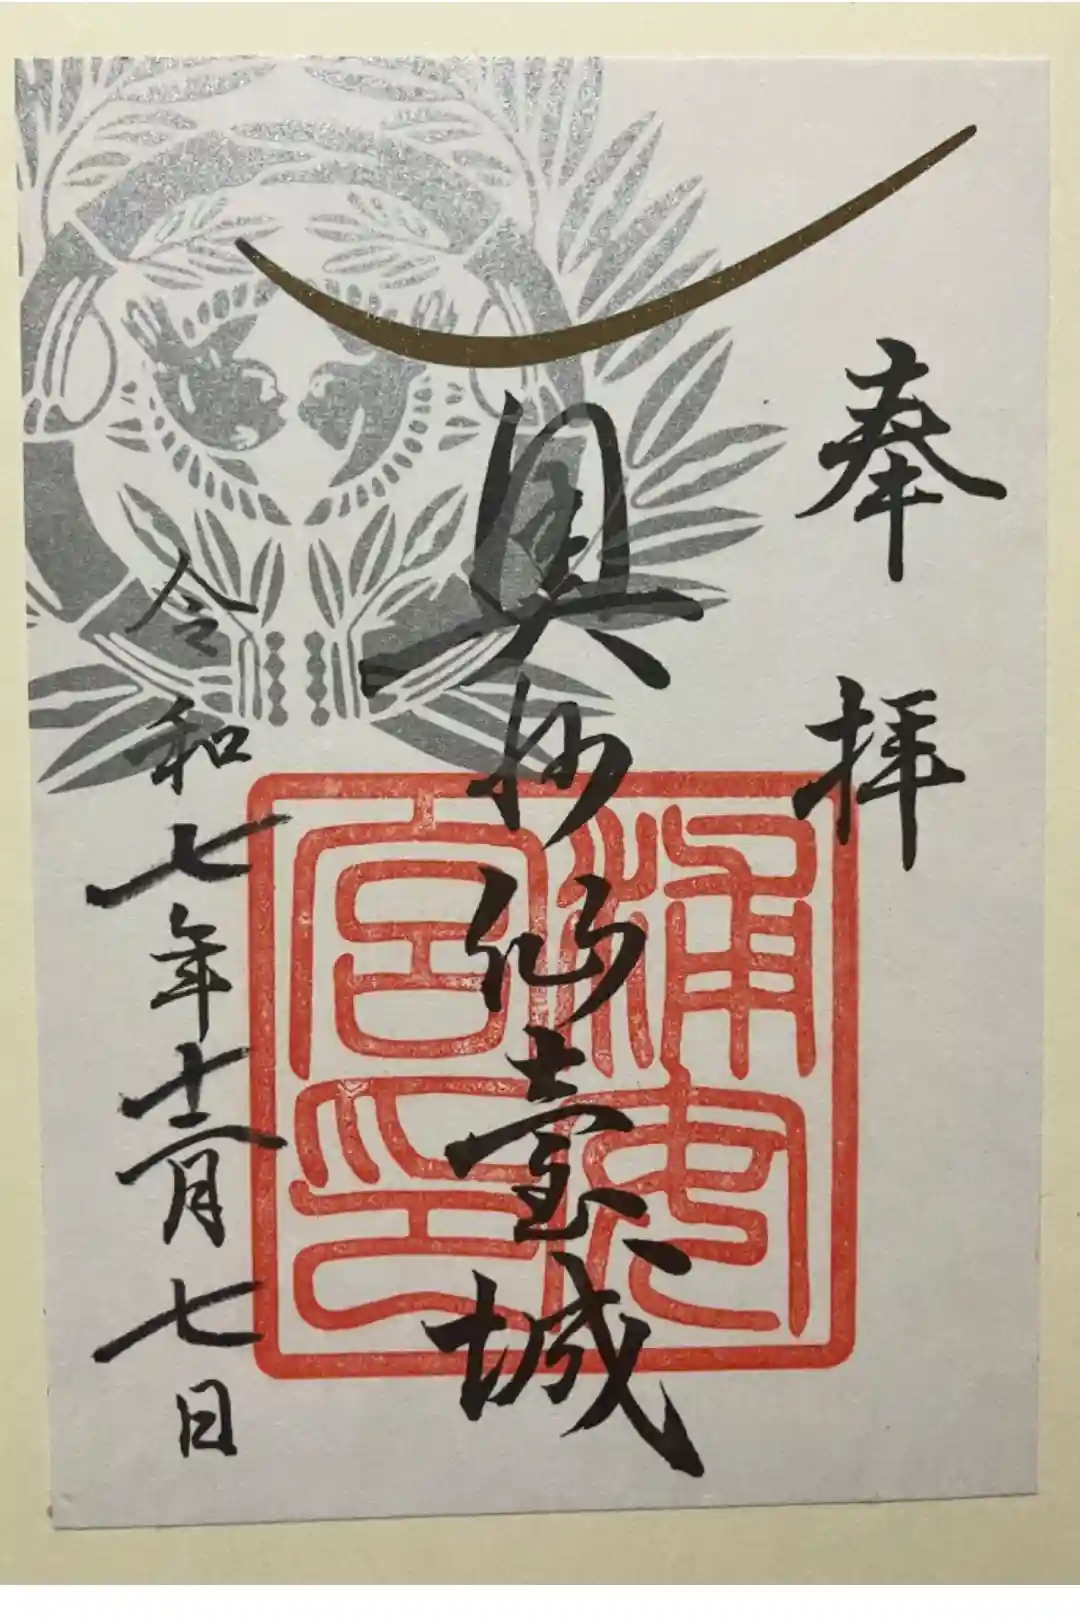 奉拝
奥州仙臺城
令和七年十二月七日
浦安
宮印